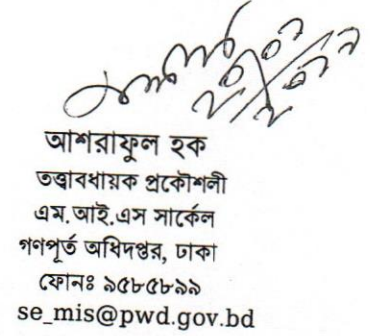 আশরাফুল হক
তত্ত্বাবধায়ক প্রকৌশলী
এম.আই.এস সার্কেল
গণপূর্ত অধিদপ্তর, ঢাকা
ফোনঃ ৯৫৮৫৮৯৯
se_mis@pwd.gov.bd